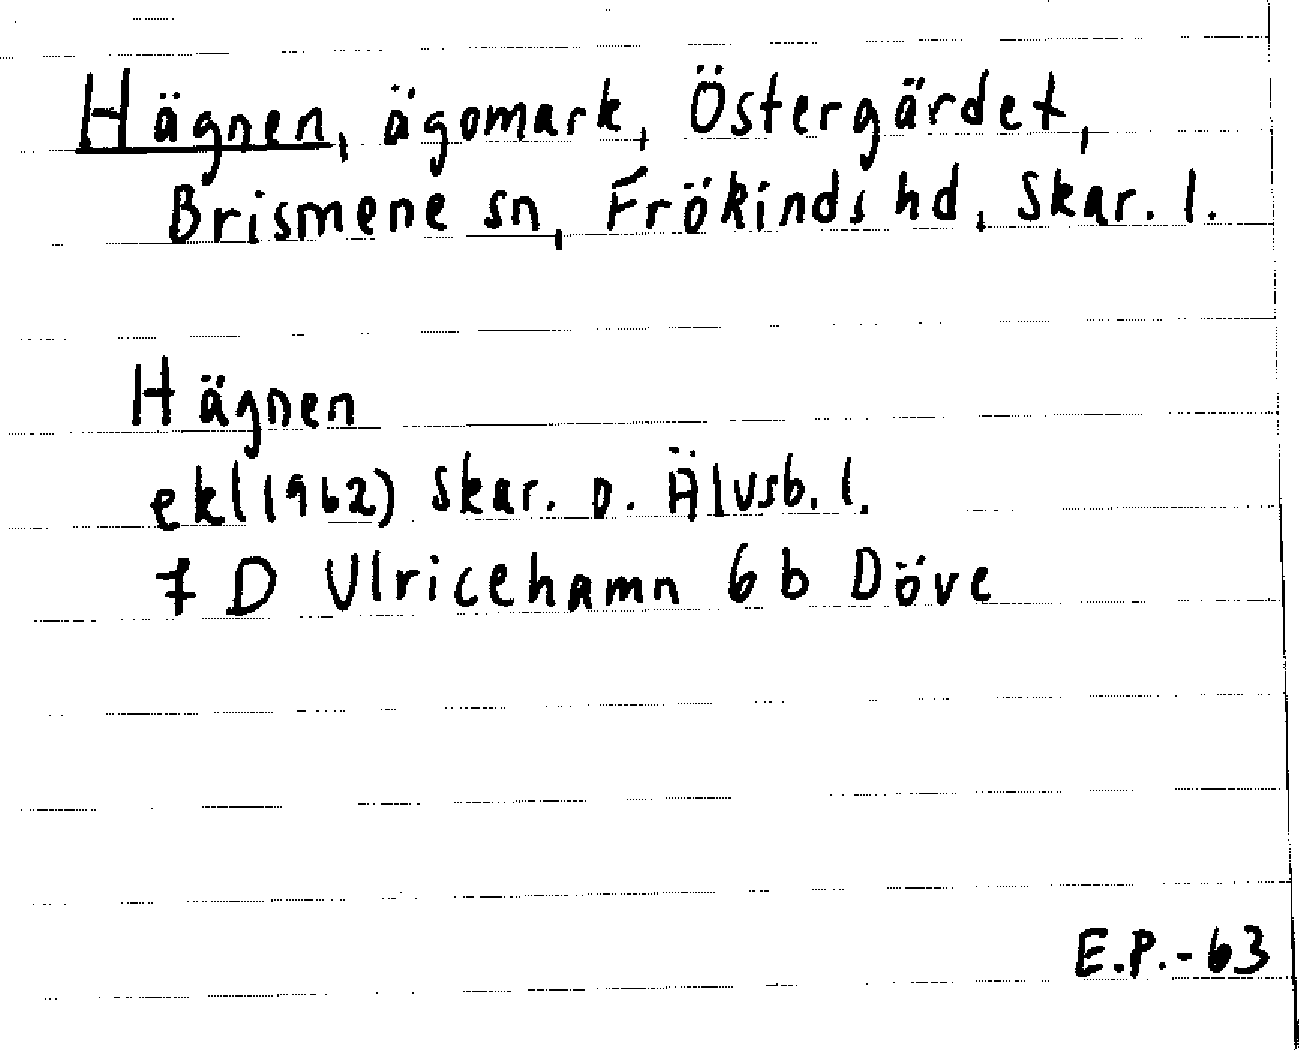 Hägnen, ägomark, Östergärdet,
Brismene sn, Frökinds hd, Skar. l.
Hägnen
ekl (1962) Skar. o. Älvsb. l.
7 D Ulricehamn 6 b Döve
E.P.-63